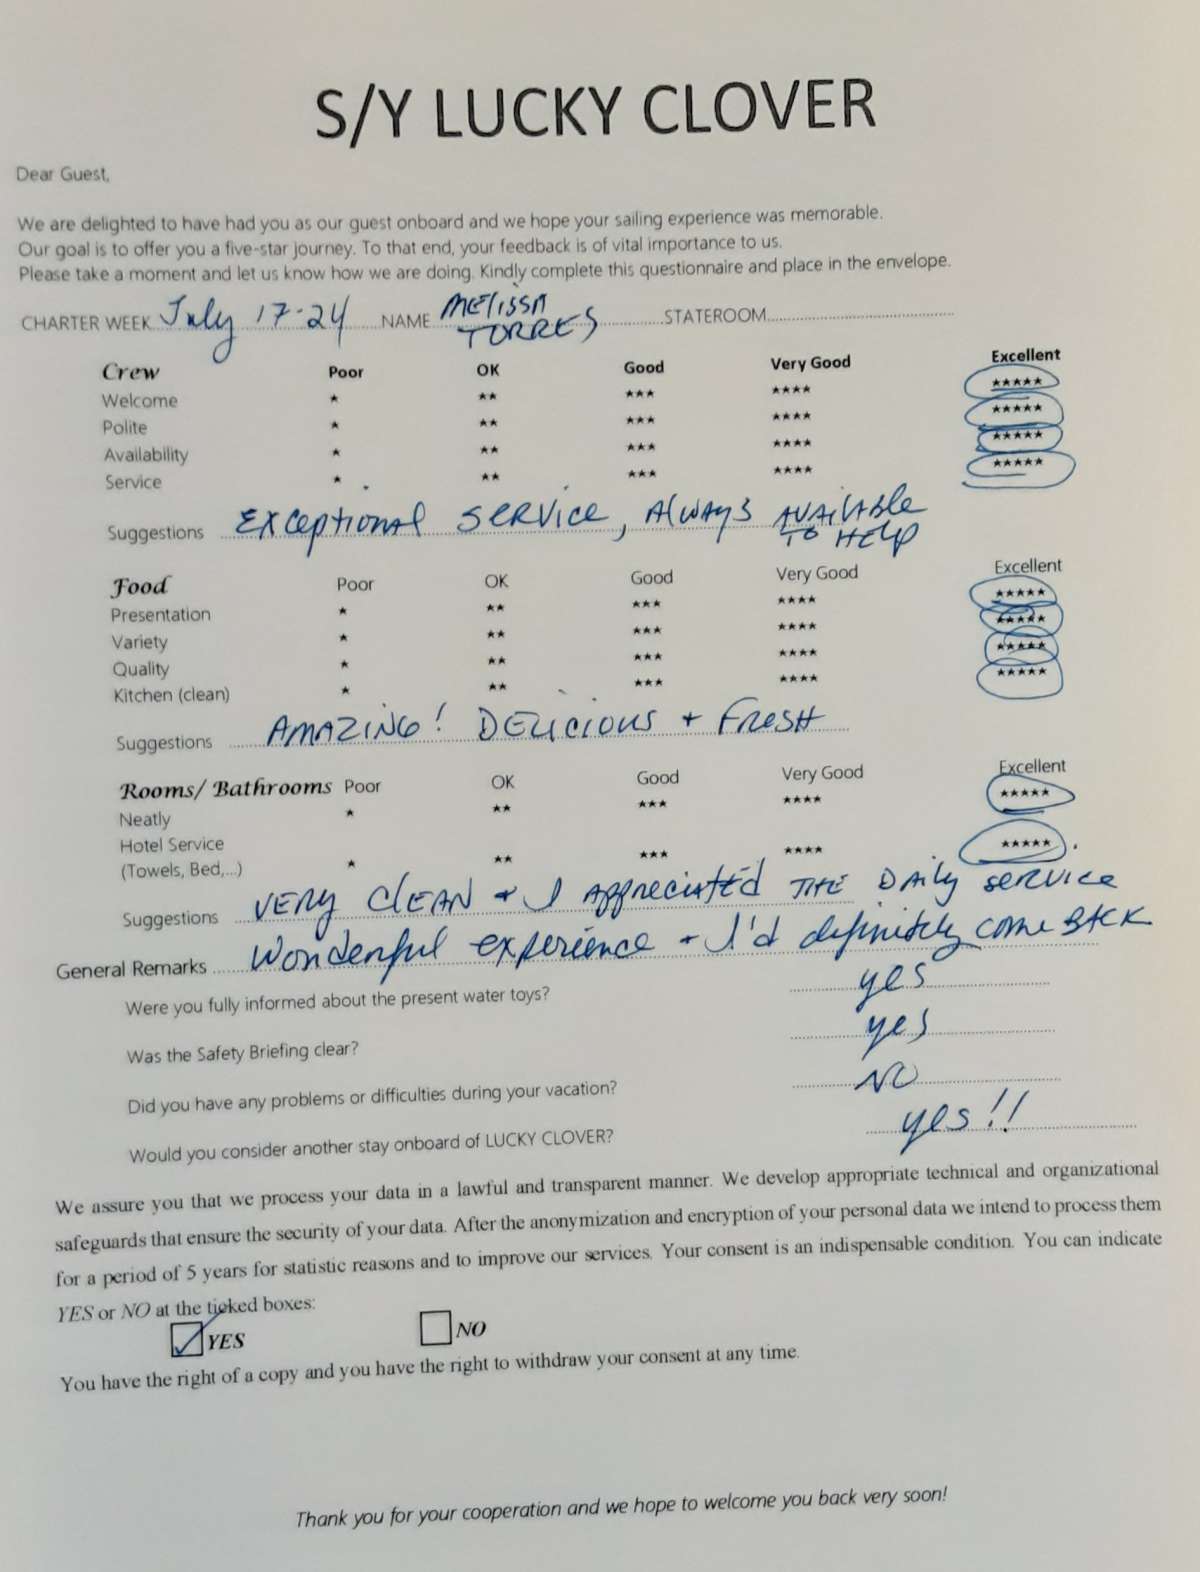 S/Y LUCKY CLOVER
Dear Guest,
We are delighted to have had you as our guest onboard and we hope your sailing experience was memorable.
Our goal is to offer you a five-star journey. To that end, your feedback is of vital importance to us.
Please take a moment and let us know how we are doing. Kindly complete this questionnaire and place in the envelope.
CHARTER WEEK July 17-24 NAME MELISSA TORRES STATEROOM
Crew Poor OK Good Very Good Excellent
Welcome ★ ★★ ★★★ ★★★★ ★★★★★
Polite ★ ★★ ★★★ ★★★★ ★★★★★
Availability ★ ★★ ★★★ ★★★★ ★★★★★
Service ★ ★★ ★★★ ★★★★ ★★★★★
Suggestions Exceptional service, Always AVAILABLE
TO HELP
Food Poor OK Good Very Good Excellent
Presentation ★ ★★ ★★★ ★★★★ ★★★★★
Variety ★ ★★ ★★★ ★★★★ ★★★★★
Quality ★ ★★ ★★★ ★★★★ ★★★★★
Kitchen (clean) ★ ★★ ★★★ ★★★★ ★★★★★
Suggestions AMAZING! DELICIOUS + FRESH
Rooms/ Bathrooms Poor OK Good Very Good Excellent
Neatly ★ ★★ ★★★ ★★★★ ★★★★★
Hotel Service
(Towels, Bed,...) ★ ★★ ★★★ ★★★★ ★★★★★
Suggestions VERY CLEAN + I Appreciated THE DAily service
General Remarks Wonderful experience + I'd definitely come BACK
Were you fully informed about the present water toys? yes
Was the Safety Briefing clear? yes
Did you have any problems or difficulties during your vacation? NO
Would you consider another stay onboard of LUCKY CLOVER? yes!!
We assure you that we process your data in a lawful and transparent manner. We develop appropriate technical and organizational
safeguards that ensure the security of your data. After the anonymization and encryption of your personal data we intend to process them
for a period of 5 years for statistic reasons and to improve our services. Your consent is an indispensable condition. You can indicate
YES or NO at the ticked boxes:
YES NO
You have the right of a copy and you have the right to withdraw your consent at any time.
Thank you for your cooperation and we hope to welcome you back very soon!